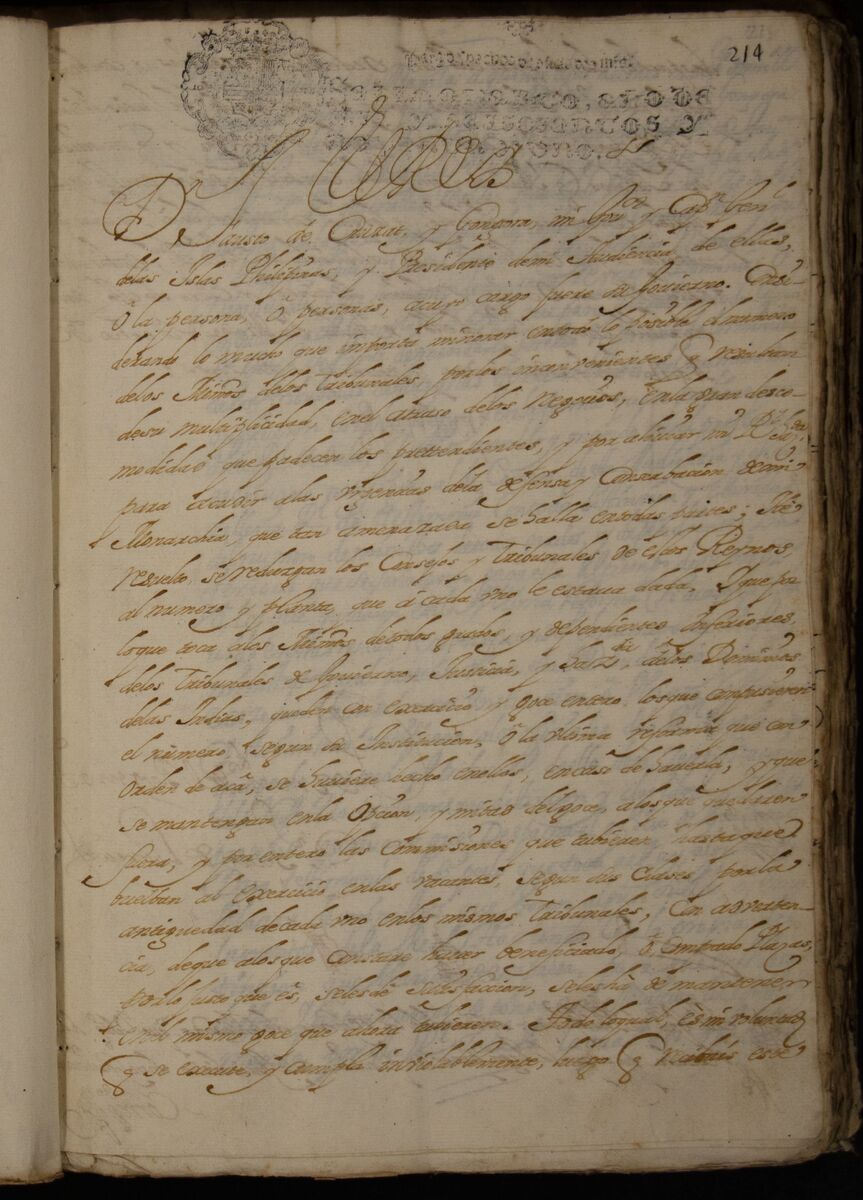 214
Para despachos de oficio
SELLO QVARTO, AÑO DE
MIL Y SEISCIENTOS Y
NOVENTA Y VNO.
El Rey
Dn Fausto de Cruzat, y Gongora, mi Govor y Capn Genl
delas Islas Philipinas, y Presidente demi Audiencia de ellas,
ô la persona, ô personas, acuyo cargo fuere su govierno. Consi-
derando lo mucho que importa minorar entodo lo posible el numero
delos Minros delos Tribunales, porlos inconvenientes q resultan
desu multiplicidad, enel atraso delos negocios, enla gran desco-
modidad que padecen los pretendientes, y por alibiar mi Rl hazda
para acudir alas urgencias dela defensa y Conserbacion demi
Monarchia, que tan amenazada se halla entodas partes; Hê
resuelto, se reduzgan los Consejos y Tribunales de estos Reynos,
al numero y planta que â cada uno le estaua dada, Y que por
loque toca alos Minros detodos grados, y dependientes inferiores,
delos Tribunales de govierno, Justicia, y hazda, de los Dominios
delas Indias, queden con exercicio y goce entero los que compusieren
el numero, segun su Institucion, ô la ultima reforma que con
orden de acâ, se huuiere hecho enellos, encaso de hauerla; y que
se mantengan enla opcion, y mitad delgoce, alos que quedaren
fuera, y por entero las Commisiones que tubieren hasta que
buelban al exercicio enlas vacantes, segun sus Clases porla
antiguedad decada uno enlos mismos Tribunales, Con aduerten-
cia, deque alos que Constare hauer beneficiado, ô Comprado Plazas,
porlo justo que es, seles dê Satisfaccion, seles hâ de mantener
enel mismo goce que ahora tubieren. Todo loqual, es mi voluntad
q se execute, y cumpla inviolablemente, luego q reciuais este